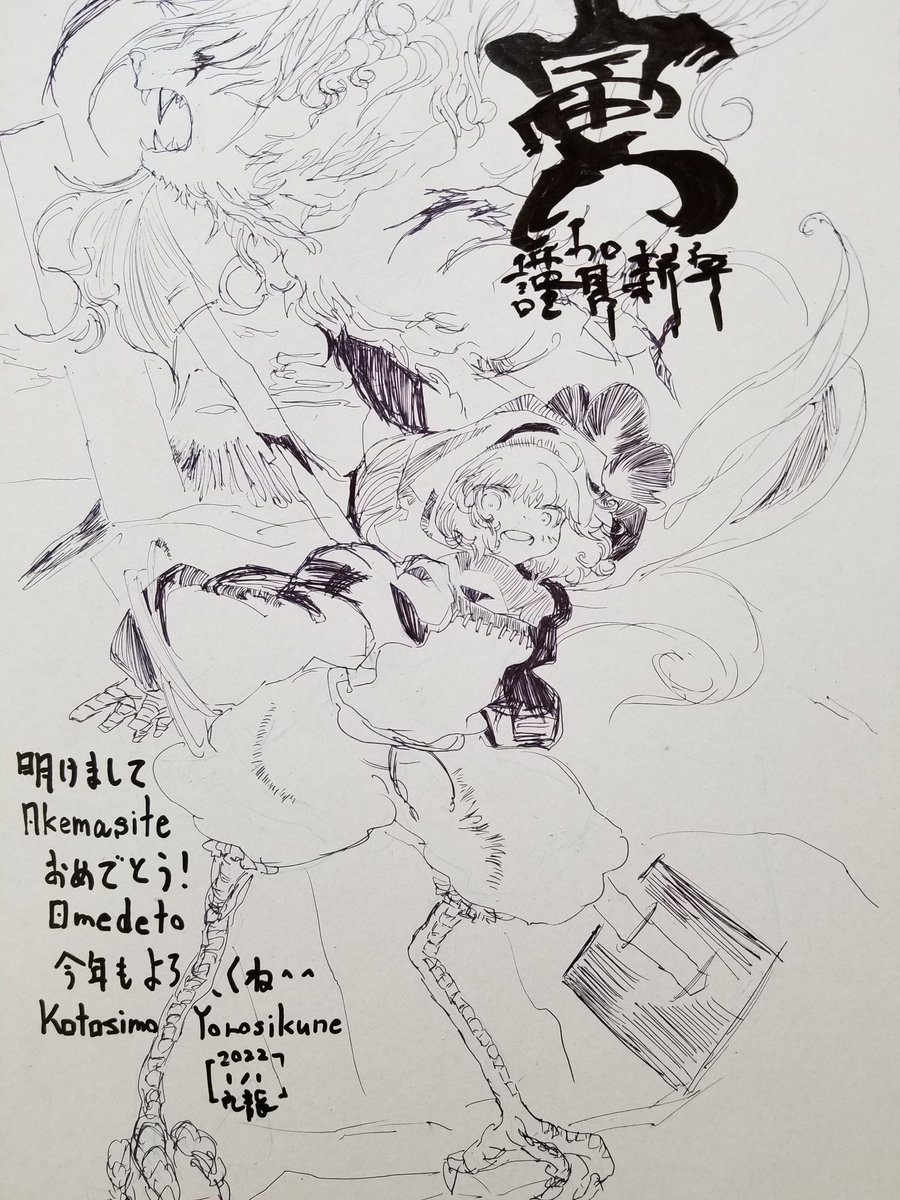 寅
謹賀新年
明けまして
Akemasite
おめでとう!
Omedeto
今年もよろしくね〜〜
Kotosimo Yorosikune
「2022
1/1